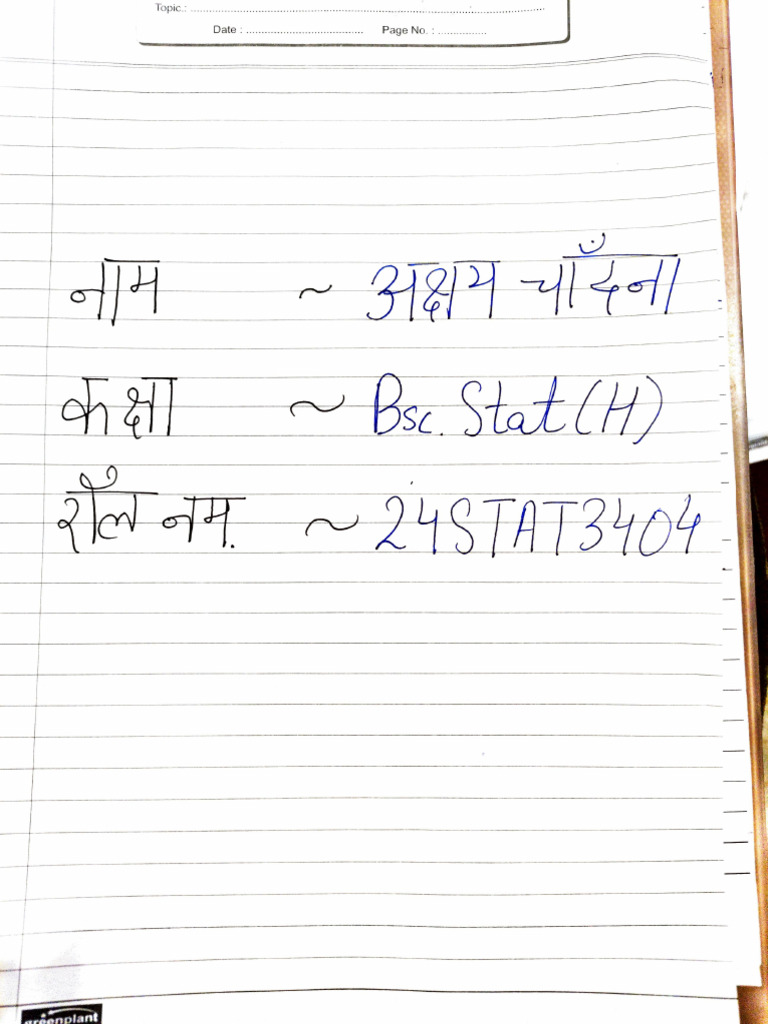 Topic.: ..........
Date : .......... Page No. : ..........
नाम ~ अक्षय चाँदना
कक्षा ~ Bsc. Stat (H)
रॉल नम. ~ 24STAT3404
greenplant